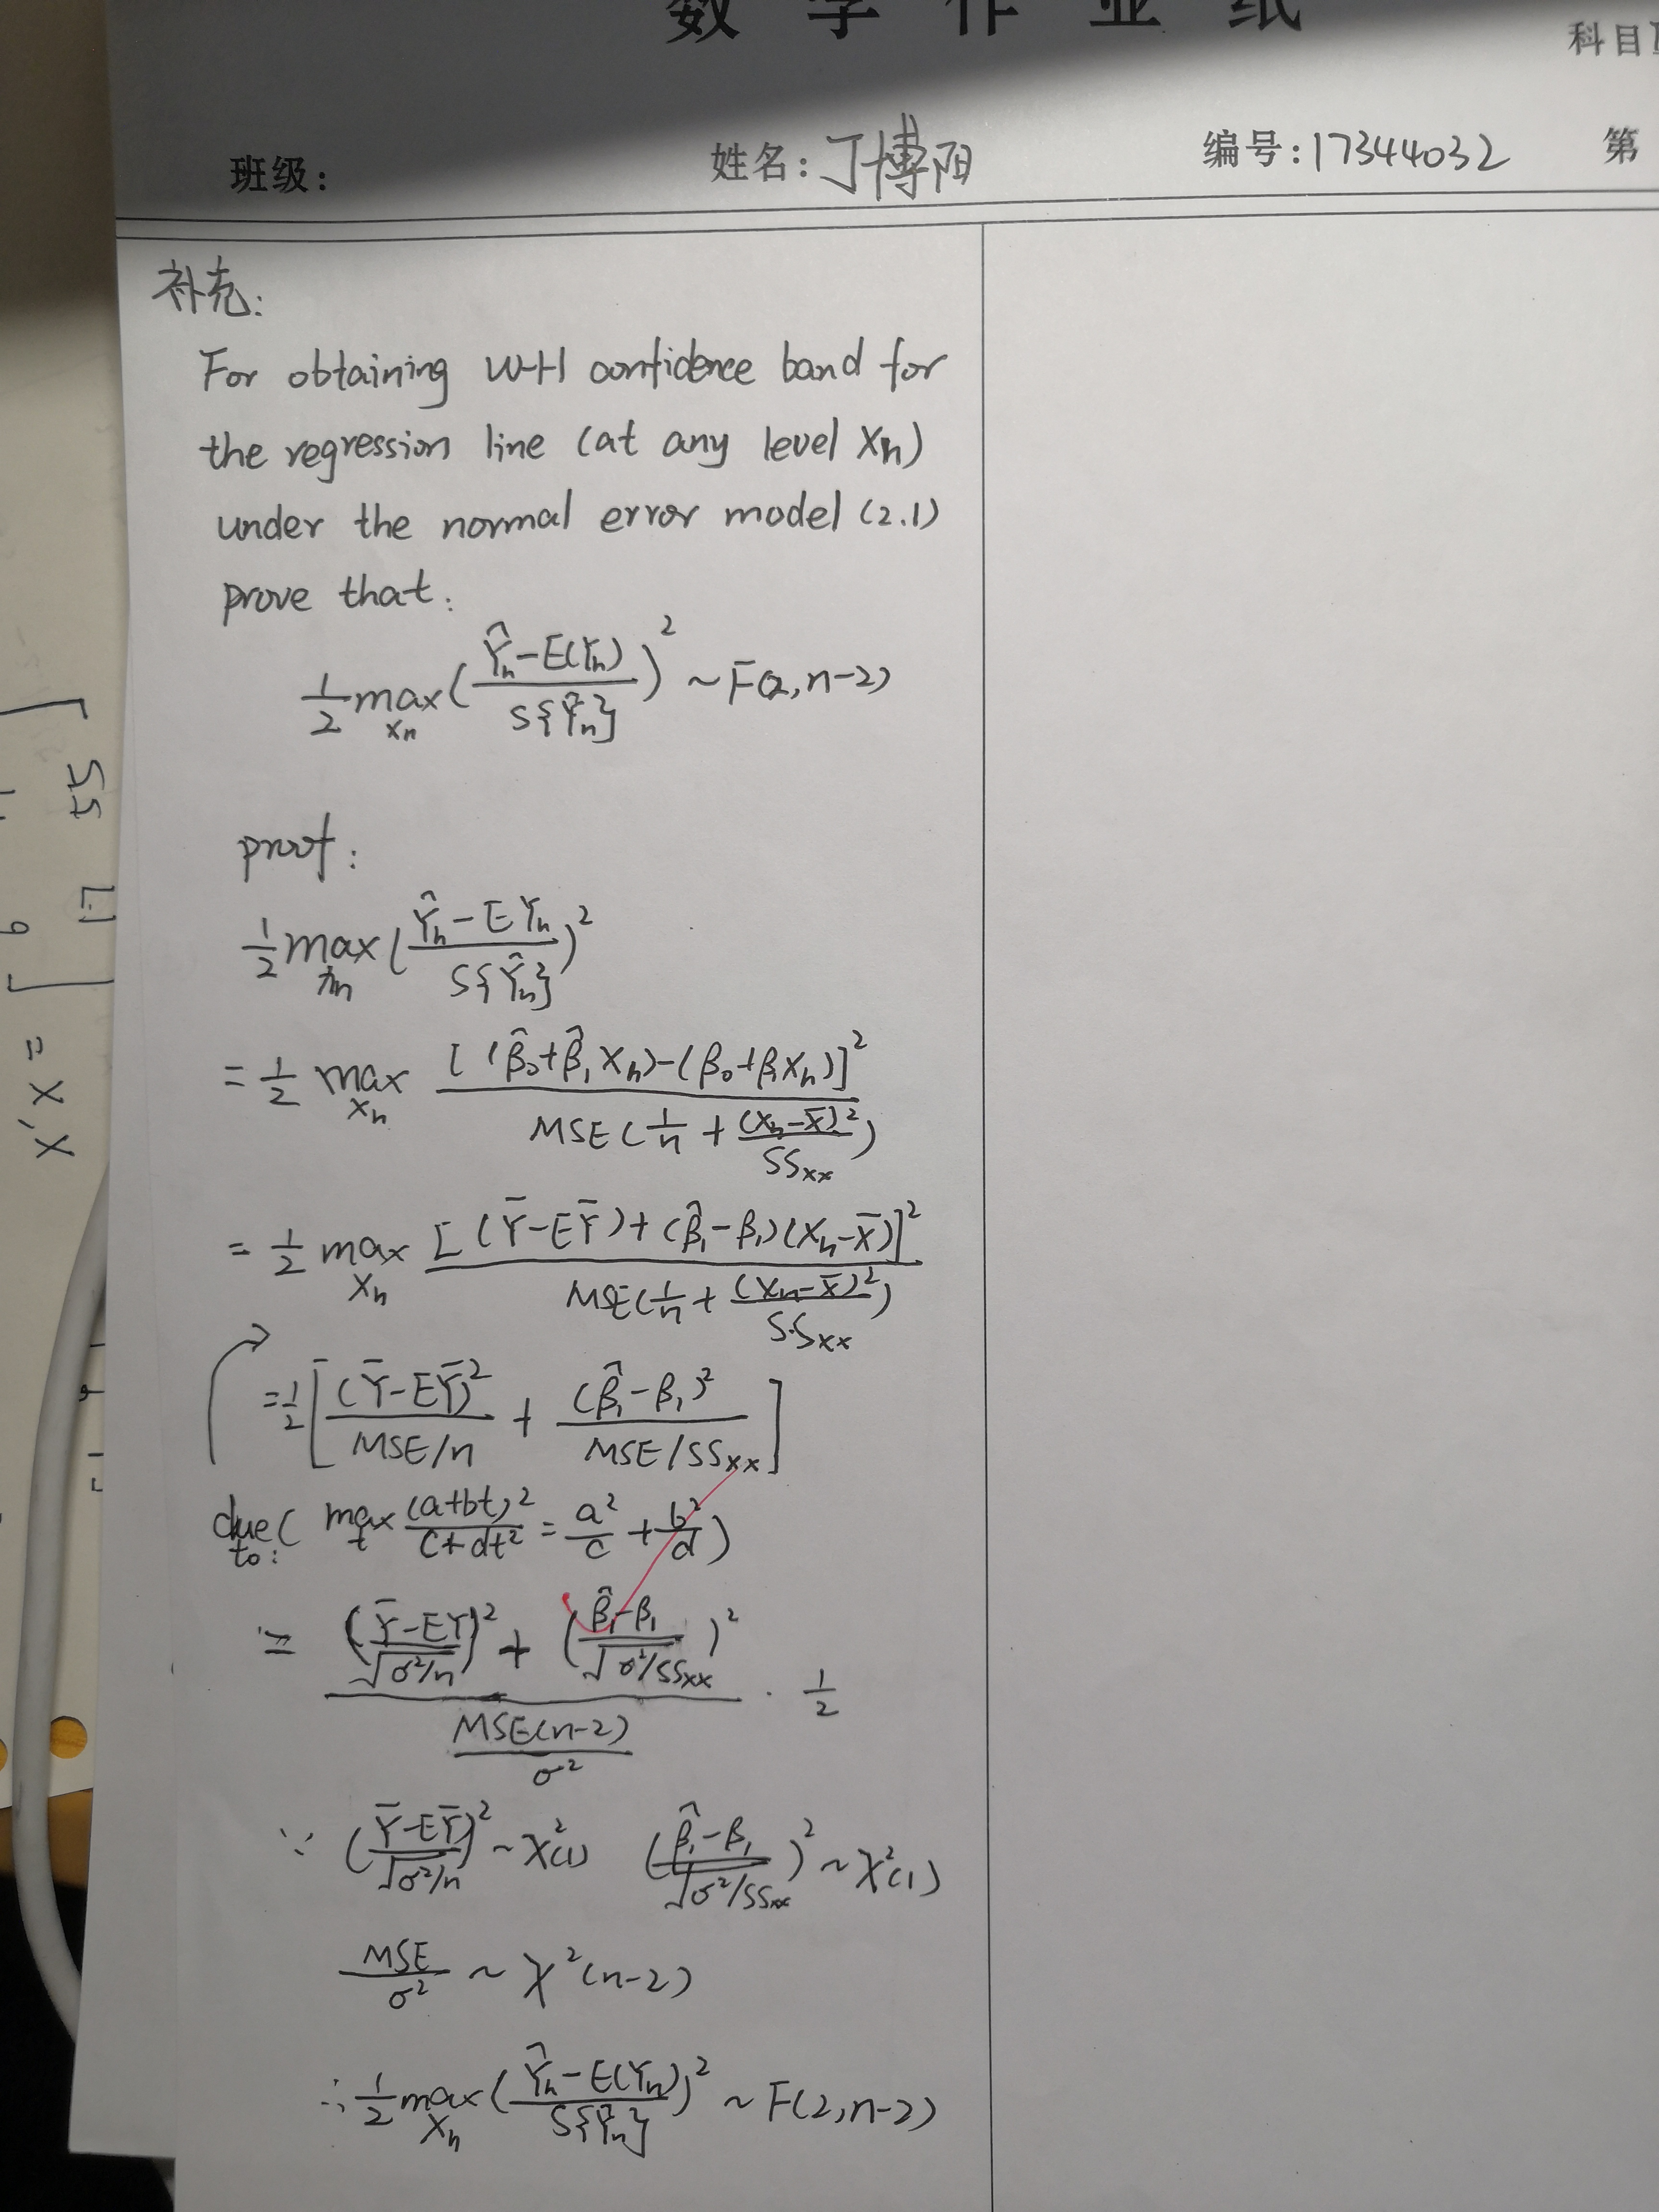 数学作业纸
科目
班级:
姓名:丁博阳
编号:17344032
第
补充:
For obtaining W-H confidence band for
the regression line (at any level Xh)
under the normal error model (2.1)
prove that:
1/2 max_{Xh} ( (Ŷh - E(Yh)) / S{Ŷh} )² ~ F(2, n-2)
proof:
1/2 max_{Xh} ( (Ŷh - EYh) / S{Ŷh} )²
= 1/2 max_{Xh} [(β̂0+β̂1Xh)-(β0+β1Xh)]² / MSE(1/n + (Xh-X̄)²/SSxx)
= 1/2 max_{Xh} [(Ȳ-EȲ)+(β̂1-β1)(Xh-X̄)]² / MSE(1/n + (Xh-X̄)²/SSxx)
= 1/2 [ (Ȳ-EȲ)² / (MSE/n) + (β̂1-β1)² / (MSE/SSxx) ]
due to: ( max_t (a+bt)²/(c+dt²) = a²/c + b²/d )
= ( ((Ȳ-EY)/√(σ²/n))² + ((β̂1-β1)/√(σ²/SSxx))² ) / ( MSE(n-2)/σ² ) · 1/2
∵ ((Ȳ-EȲ)/√(σ²/n))² ~ χ²(1) ((β̂1-β1)/√(σ²/SSxx))² ~ χ²(1)
MSE/σ² ~ χ²(n-2)
∴ 1/2 max_{Xh} ( (Ŷh - E(Yh)) / S{Ŷh} )² ~ F(2, n-2)
SS 17
9
= X'X